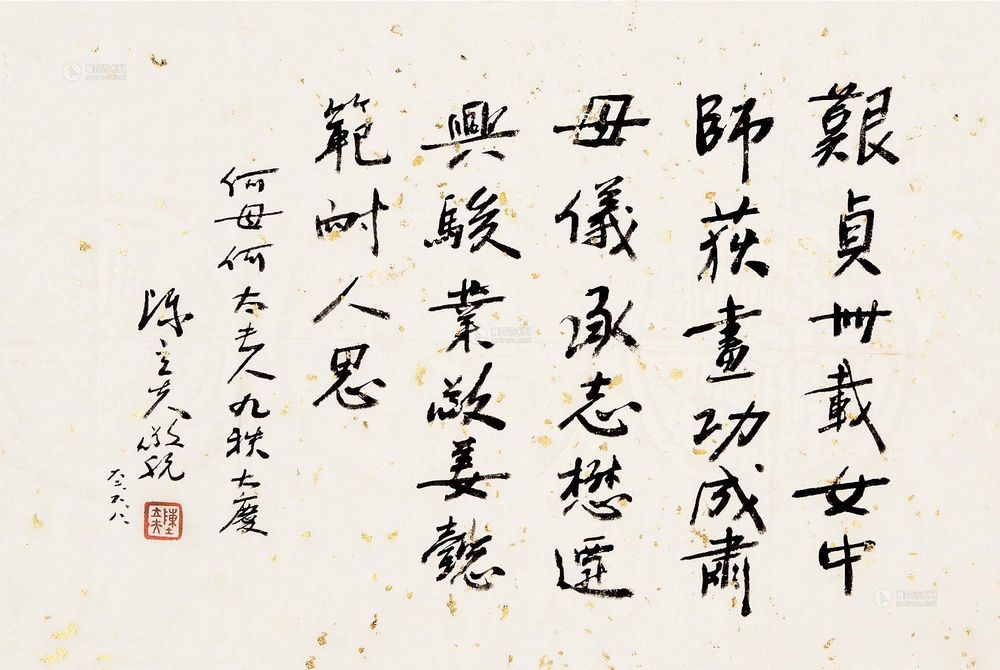 艱貞卅載女中
師荻畫功成肅
母儀承志懋遷
興駿業敬姜懿
範耐人思
何母何太夫人九秩大慶
陳立夫敬祝
六六、六、八
陳立夫